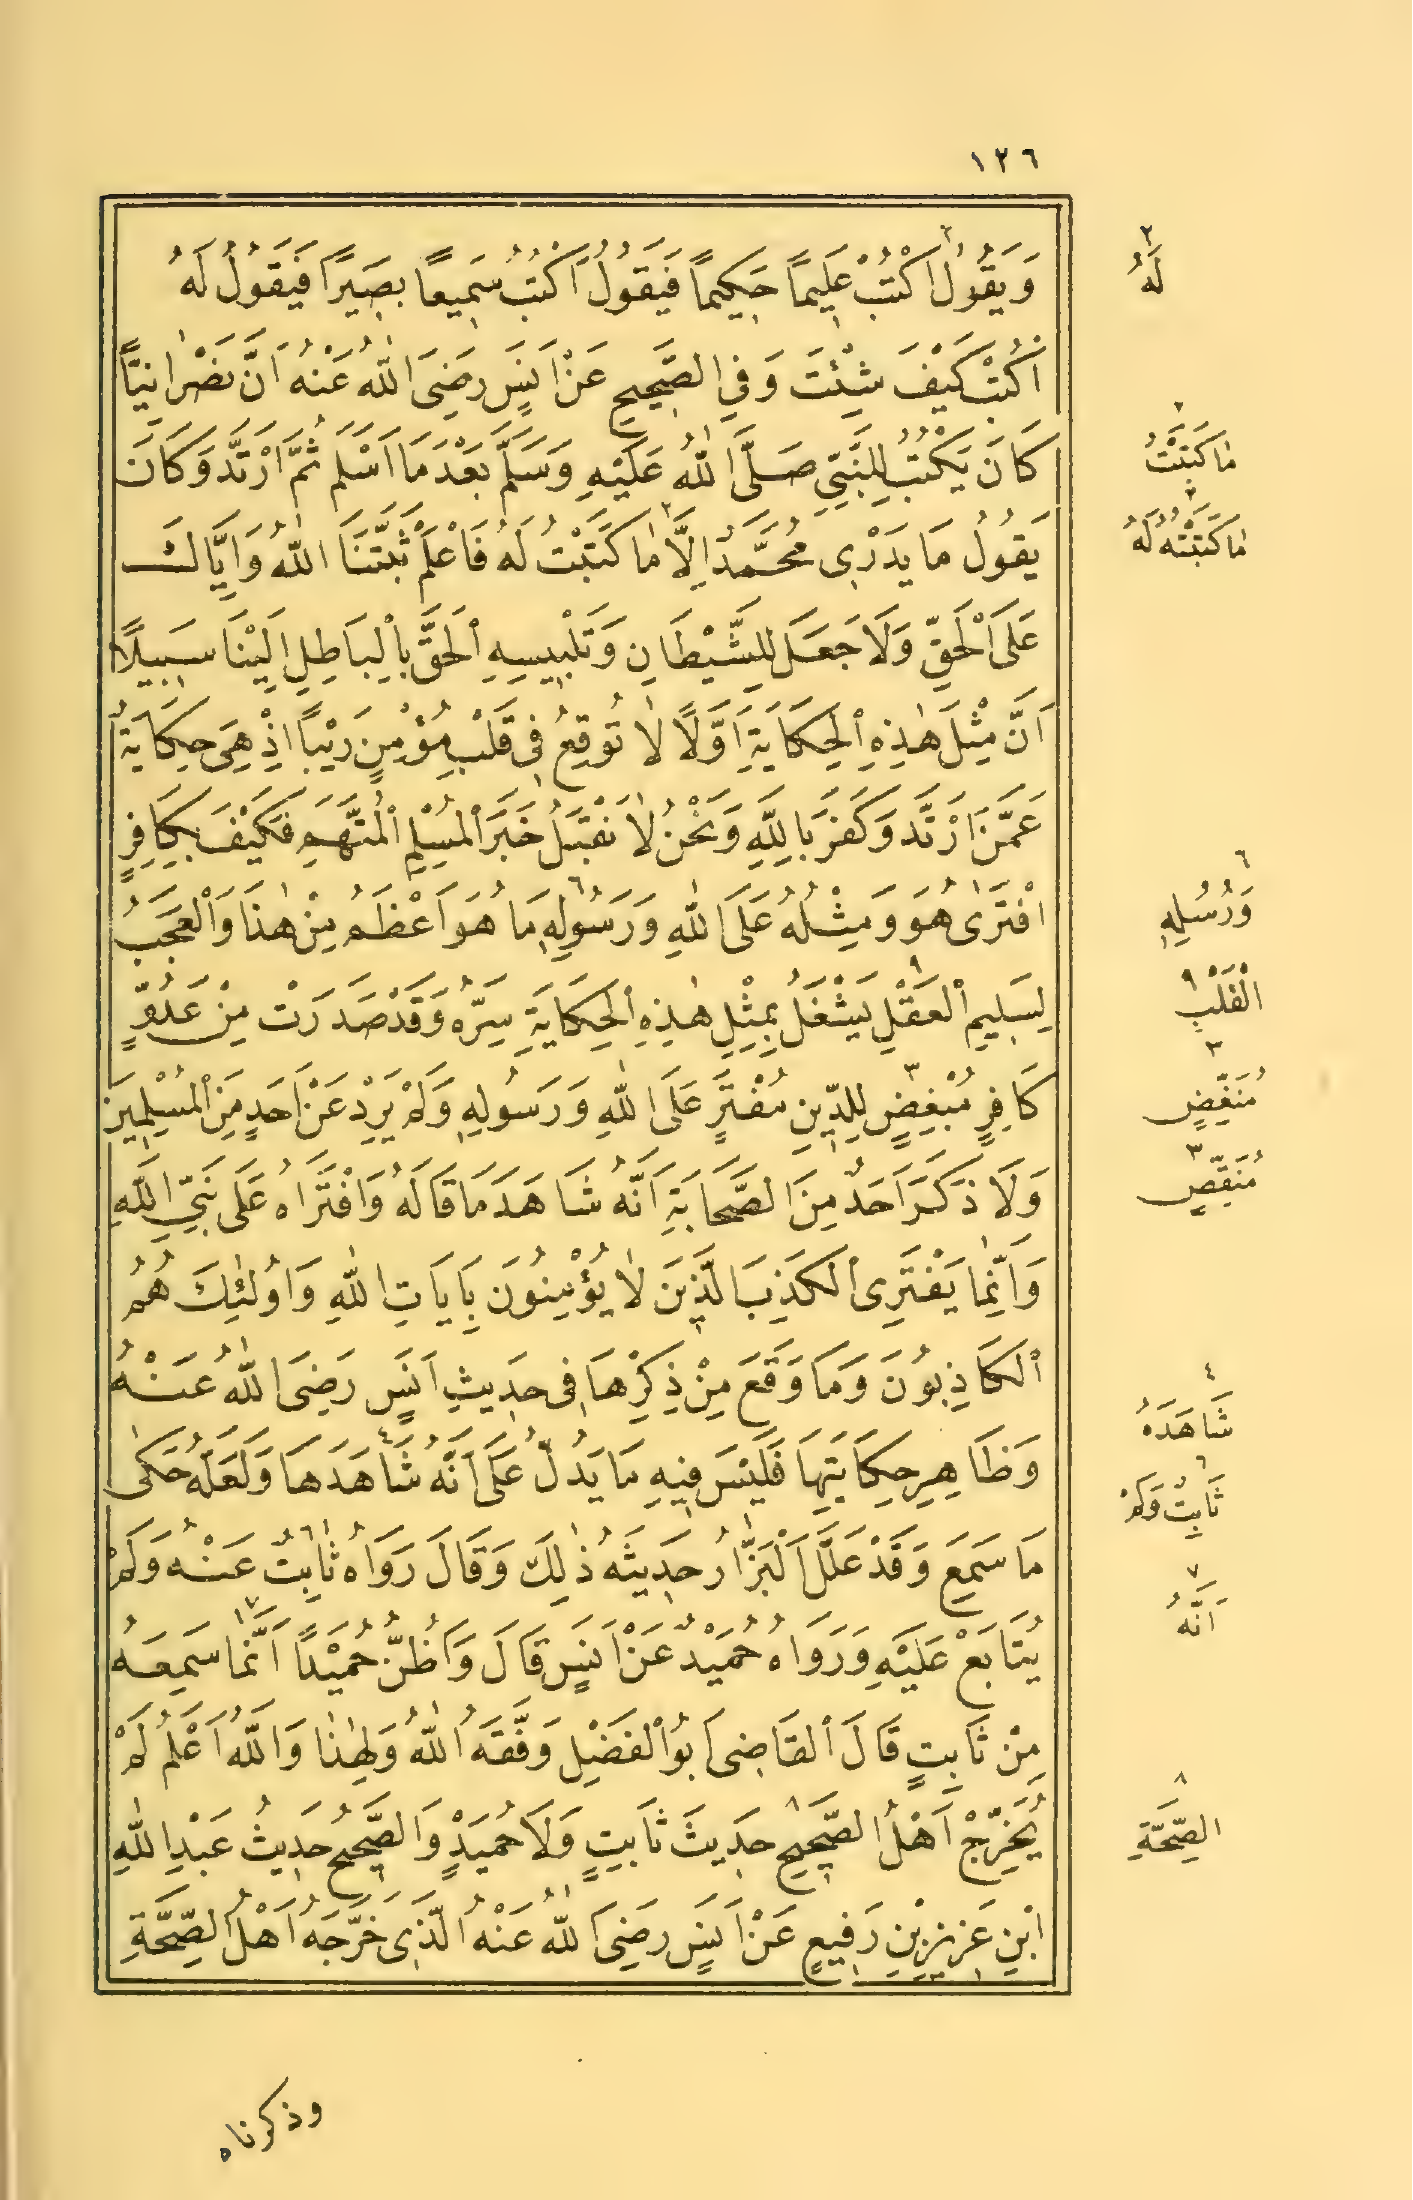 ١٢٦
وَيَقُولُ اكْتُبْ عَلِيمًا حَكِيمًا فَيَقُولُ اَكْتُبُ سَمِيعًا بَصِيرًا فَيَقُولُ لَهُ
اُكْتُبْ كَيْفَ شِئْتَ وَفِي الصَّحِيحِ عَنْ اَنَسٍ رَضِيَ اللهُ عَنْهُ اَنَّ نَصْرَانِيًّا
كَانَ يَكْتُبُ لِلنَّبِيِّ صَلَّى اللهُ عَلَيْهِ وَسَلَّمَ بَعْدَ مَا اَسْلَمَ ثُمَّ ارْتَدَّ وَكَانَ
يَقُولُ مَا يَدْرِى مُحَمَّدٌ اِلَّا مَا كَتَبْتُ لَهُ فَاعْلَمْ ثَبَّتَنَا اللهُ وَاِيَّاكَ
عَلَى الْحَقِّ وَلَا جَعَلَ لِلشَّيْطَانِ وَتَلْبِيسِهِ الْحَقَّ بِالْبَاطِلِ اِلَيْنَا سَبِيلًا
اَنَّ مِثْلَ هٰذِهِ الْحِكَايَةِ اَوَّلًا لَا تُوقِعُ فِي قَلْبِ مُؤْمِنٍ رَيْبًا اِذْ هِيَ حِكَايَةٌ
عَمَّنَ ارْتَدَّ وَكَفَرَ بِاللهِ وَنَحْنُ لَا نَقْبَلُ خَبَرَ الْمُسْلِمِ الْمُتَّهَمِ فَكَيْفَ بِكَافِرٍ
افْتَرٰى هُوَ وَمِثْلُهُ عَلَى اللهِ وَرَسُولِهِ مَا هُوَ اَعْظَمُ مِنْ هٰذَا وَالْعَجَبُ
لِسَلِيمِ الْعَقْلِ يَشْغَلُ بِمِثْلِ هٰذِهِ الْحِكَايَةِ سِرَّهُ وَقَدْ صَدَرَتْ مِنْ عَدُوٍّ
كَافِرٍ مُبْغِضٍ لِلدِّينِ مُفْتَرٍ عَلَى اللهِ وَرَسُولِهِ وَلَمْ يَرِدْ عَنْ اَحَدٍ مِنَ الْمُسْلِمِينَ
وَلَا ذَكَرَ اَحَدٌ مِنَ الصَّحَابَةِ اَنَّهُ شَاهَدَ مَا قَالَهُ وَافْتَرَاهُ عَلَى نَبِيِّ اللهِ
وَاِنَّمَا يَفْتَرِى الْكَذِبَ الَّذِينَ لَا يُؤْمِنُونَ بِاٰيَاتِ اللهِ وَاُولٰئِكَ هُمُ
الْكَاذِبُونَ وَمَا وَقَعَ مِنْ ذِكْرِهَا فِى حَدِيثِ اَنَسٍ رَضِيَ اللهُ عَنْهُ
وَظَاهِرِ حِكَايَتِهَا فَلَيْسَ فِيهِ مَا يَدُلُّ عَلَى اَنَّهُ شَاهَدَهَا وَلَعَلَّهُ حَكٰى
مَا سَمِعَ وَقَدْ عَلَّلَ الْبَزَّارُ حَدِيثَهُ ذٰلِكَ وَقَالَ رَوَاهُ ثَابِتٌ عَنْهُ وَلَمْ
يُتَابَعْ عَلَيْهِ وَرَوَاهُ حُمَيْدٌ عَنْ اَنَسٍ قَالَ وَاَظُنُّ حُمَيْدًا اَنَّمَا سَمِعَهُ
مِنْ ثَابِتٍ قَالَ الْقَاضِى اَبُو الْفَضْلِ وَفَّقَهُ اللهُ وَلِهٰذَا وَاللهُ اَعْلَمُ لَمْ
يُخَرِّجْ اَهْلُ الصَّحِيحِ حَدِيثَ ثَابِتٍ وَلَا حُمَيْدٍ وَالصَّحِيحُ حَدِيثُ عَبْدِ اللهِ
ابْنِ عَزِيزِ بْنِ رَفِيعٍ عَنْ اَنَسٍ رَضِيَ اللهُ عَنْهُ الَّذِى خَرَّجَهُ اَهْلُ الصِّحَّةِ
وذكرناه
٢
لَهُ
٢
مَا كَتَبْتُ
٢
مَا كَتَبْتُهُ لَهُ
٦
وَرُسُلِهِ
٩
الْقَلْبِ
٣
مُنَغِّضٍ
٣
مُنَقِّصٍ
٤
شَاهَدَهُ
٦
ثَابِتٌ وَلَمْ
٧
اَنَّهُ
٨
الصِّحَّةِ